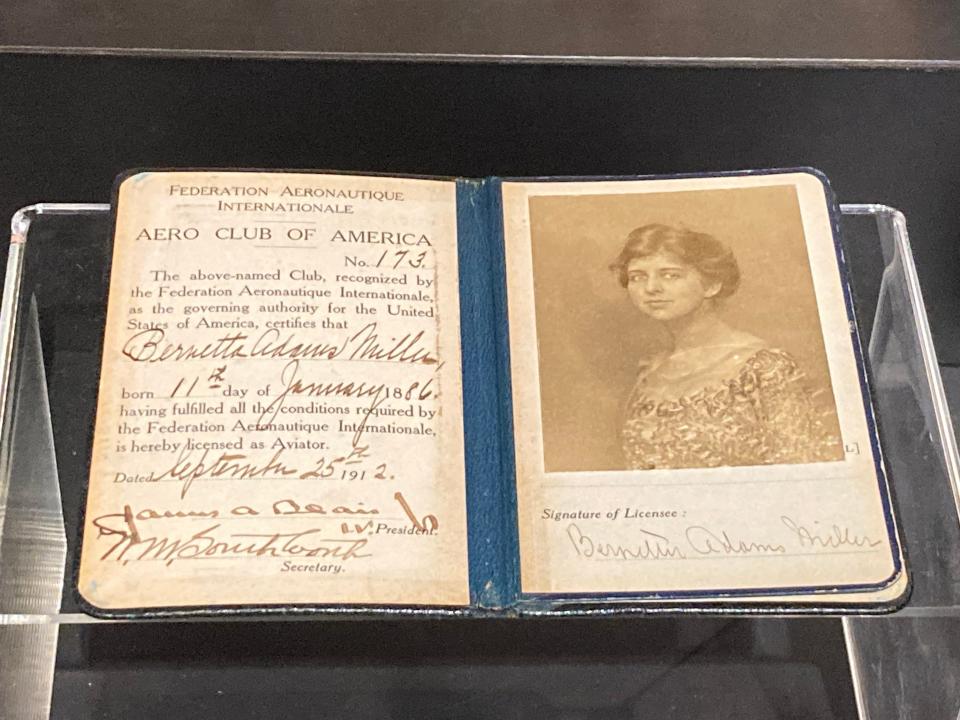 FEDERATION AERONAUTIQUE
INTERNATIONALE
AERO CLUB OF AMERICA
No. 173.
The above-named Club, recognized by
the Federation Aeronautique Internationale,
as the governing authority for the United
States of America, certifies that
Bernetta Adams Miller,
born 11th day of January 1886.
having fulfilled all the conditions required by
the Federation Aeronautique Internationale,
is hereby licensed as Aviator.
Dated September 25th 1912.
James A Blair Jr
V. President.
W. M. Southworth
Secretary.
L]
Signature of Licensee :
Bernetta Adams Miller